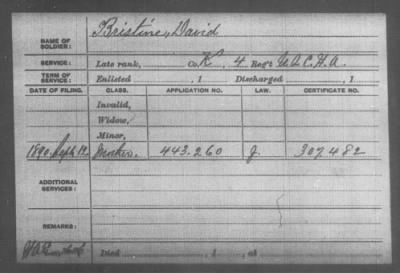 NAME OF SOLDIER: Bristine, David
SERVICE: Late rank, Co. K, 4 Reg't U.S.C.H.A.
TERM OF SERVICE: Enlisted , 1 Discharged , 1
DATE OF FILING. CLASS. APPLICATION NO. LAW. CERTIFICATE NO.
Invalid,
Widow,
Minor,
1890, Sept. 12. Mother. 443.260 J. 307.482
ADDITIONAL SERVICES:
REMARKS:
Died , 1 , at